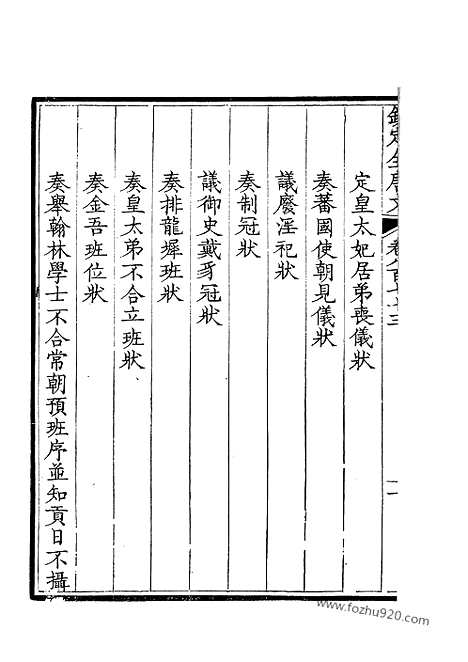 欽定全唐文
定皇太妃居弟喪儀狀
奏蕃國使朝見儀狀
議廢淫祀狀
奏制冠狀
議御史戴豸冠狀
奏排龍墀班狀
奏皇太弟不合立班狀
奏金吾班位狀
奏舉翰林學士不合常朝預班序並知貢日不攝
www.fozhu920.com